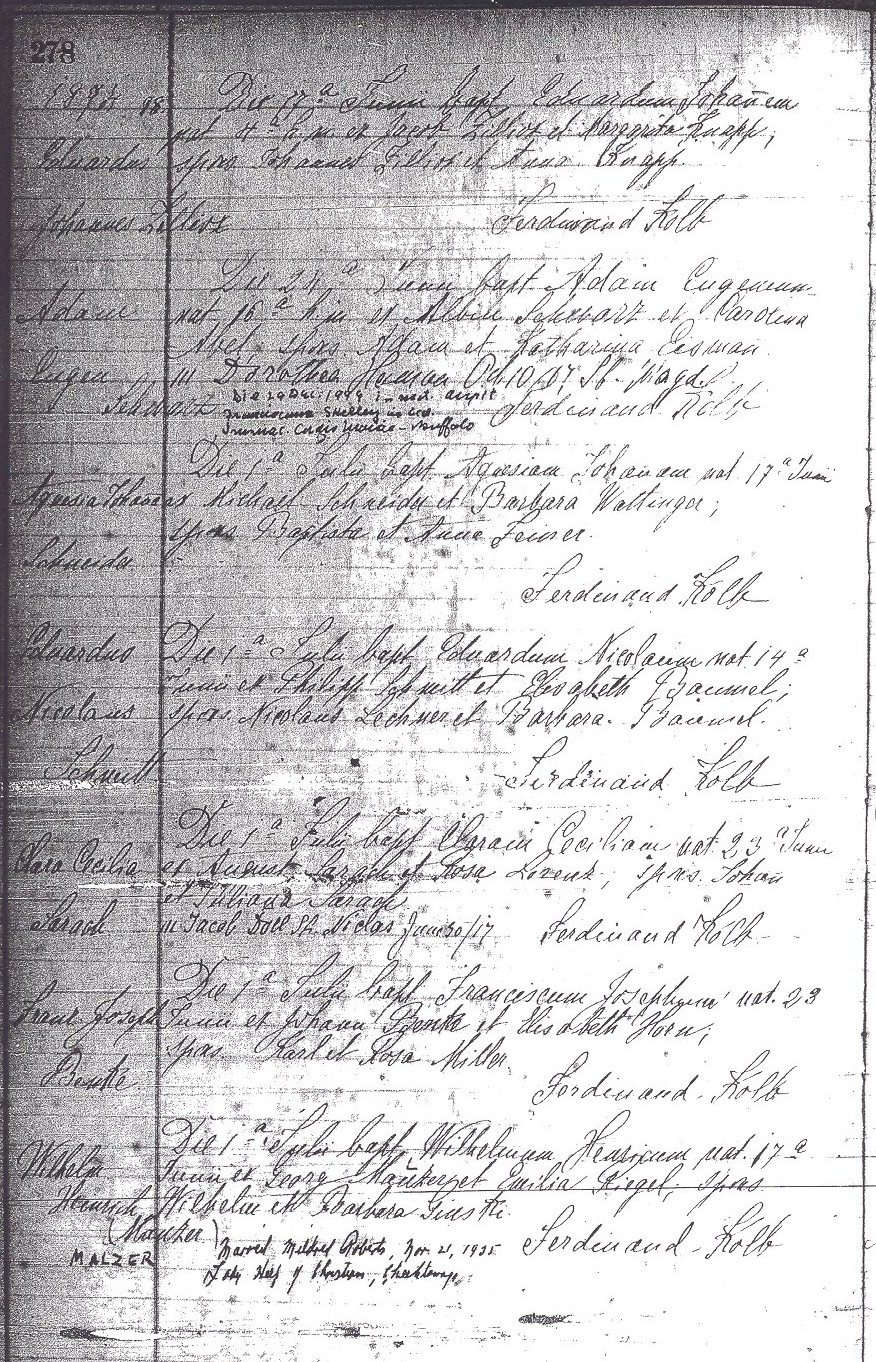 278
Die 17 a Junii bapt. Eduardum Johañem
nat 4 a h. m. ex Jacob Zilliox et Margarita Knapp;
Eduardus spons Johannes Zilliox et Anna Knapp
Johannes Zilliox Ferdinand Kolb
Die 24 a Junii bapt Adam Eugenium
Adam nat 16 a h. m. ex Albin Schwarz et Carolina
Abel spons Adam et Katharina
Eugen m Dorothea Oct 10/07 St. Magd.
Die 29 Dec. 1949
Schwarz Ferdinand Kolb
Shelley in
Buffalo
Die 1 a Julii bapt Agnesiam Johanam nat 17 a Junii
Agnesia Johanna ex Michael Schneider et Barbara Wattinger;
spons Baptista et Anna
Schneider
Ferdinand Kolb
Eduardus Die 1 a Julii bapt Eduardum Nicolaum nat 14 a
Junii ex Philipp Schmitt et Elisabeth Baumel;
Nicolaus spons. Nicolaus Lechner et Barbara. Baumel.
Schmitt Ferdinand Kolb
Die 1 a Julii bapt Claram Ceciliam nat 23 a Junii
Clara Cecilia ex August Sarach et Rosa Lorenz; spons. Johan
et Juliana Sarach
Sarach m Jacob Doll St. Niclas June 20/17 Ferdinand Kolb
Die 1 a Julii bapt Franciscum Josephum nat. 23
Franz Joseph Junii ex Johann Benka et Elisabeth Horn;
spons. Karl et Rosa Miller.
Benka Ferdinand Kolb
Die 1 a Julii bapt Wilhelmum Henricum nat. 17 a
Wilhelm Junii ex Georg Mautzer et Emilia Riegel; spons
Heinrich Wilhelm et Barbara
(Mautzer) Ferdinand Kolb
MALZER Married Mildred Roberts, Nov. 21, 1935
Lady Help of Christians, Cheektowaga